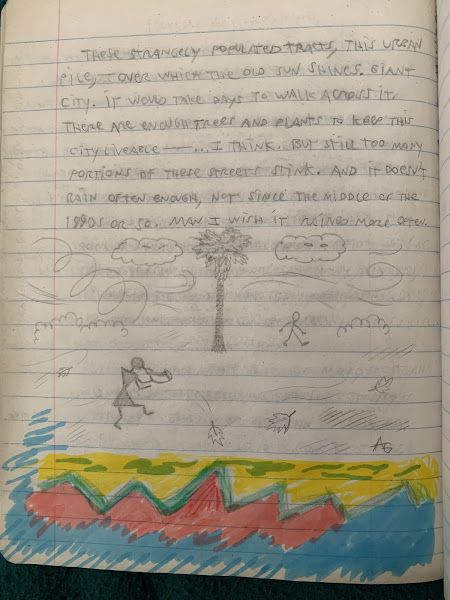 THESE STRANGELY POPULATED TRACTS, THIS URBAN
PILE, OVER WHICH THE OLD SUN SHINES. GIANT
CITY. IT WOULD TAKE DAYS TO WALK ACROSS IT.
THERE ARE ENOUGH TREES AND PLANTS TO KEEP THIS
CITY LIVEABLE —... I THINK. BUT STILL TOO MANY
PORTIONS OF THESE STREETS STINK. AND IT DOESN'T
RAIN OFTEN ENOUGH, NOT SINCE THE MIDDLE OF THE
1990S OR SO. MAN I WISH IT RAINED MORE OFTEN.
AG